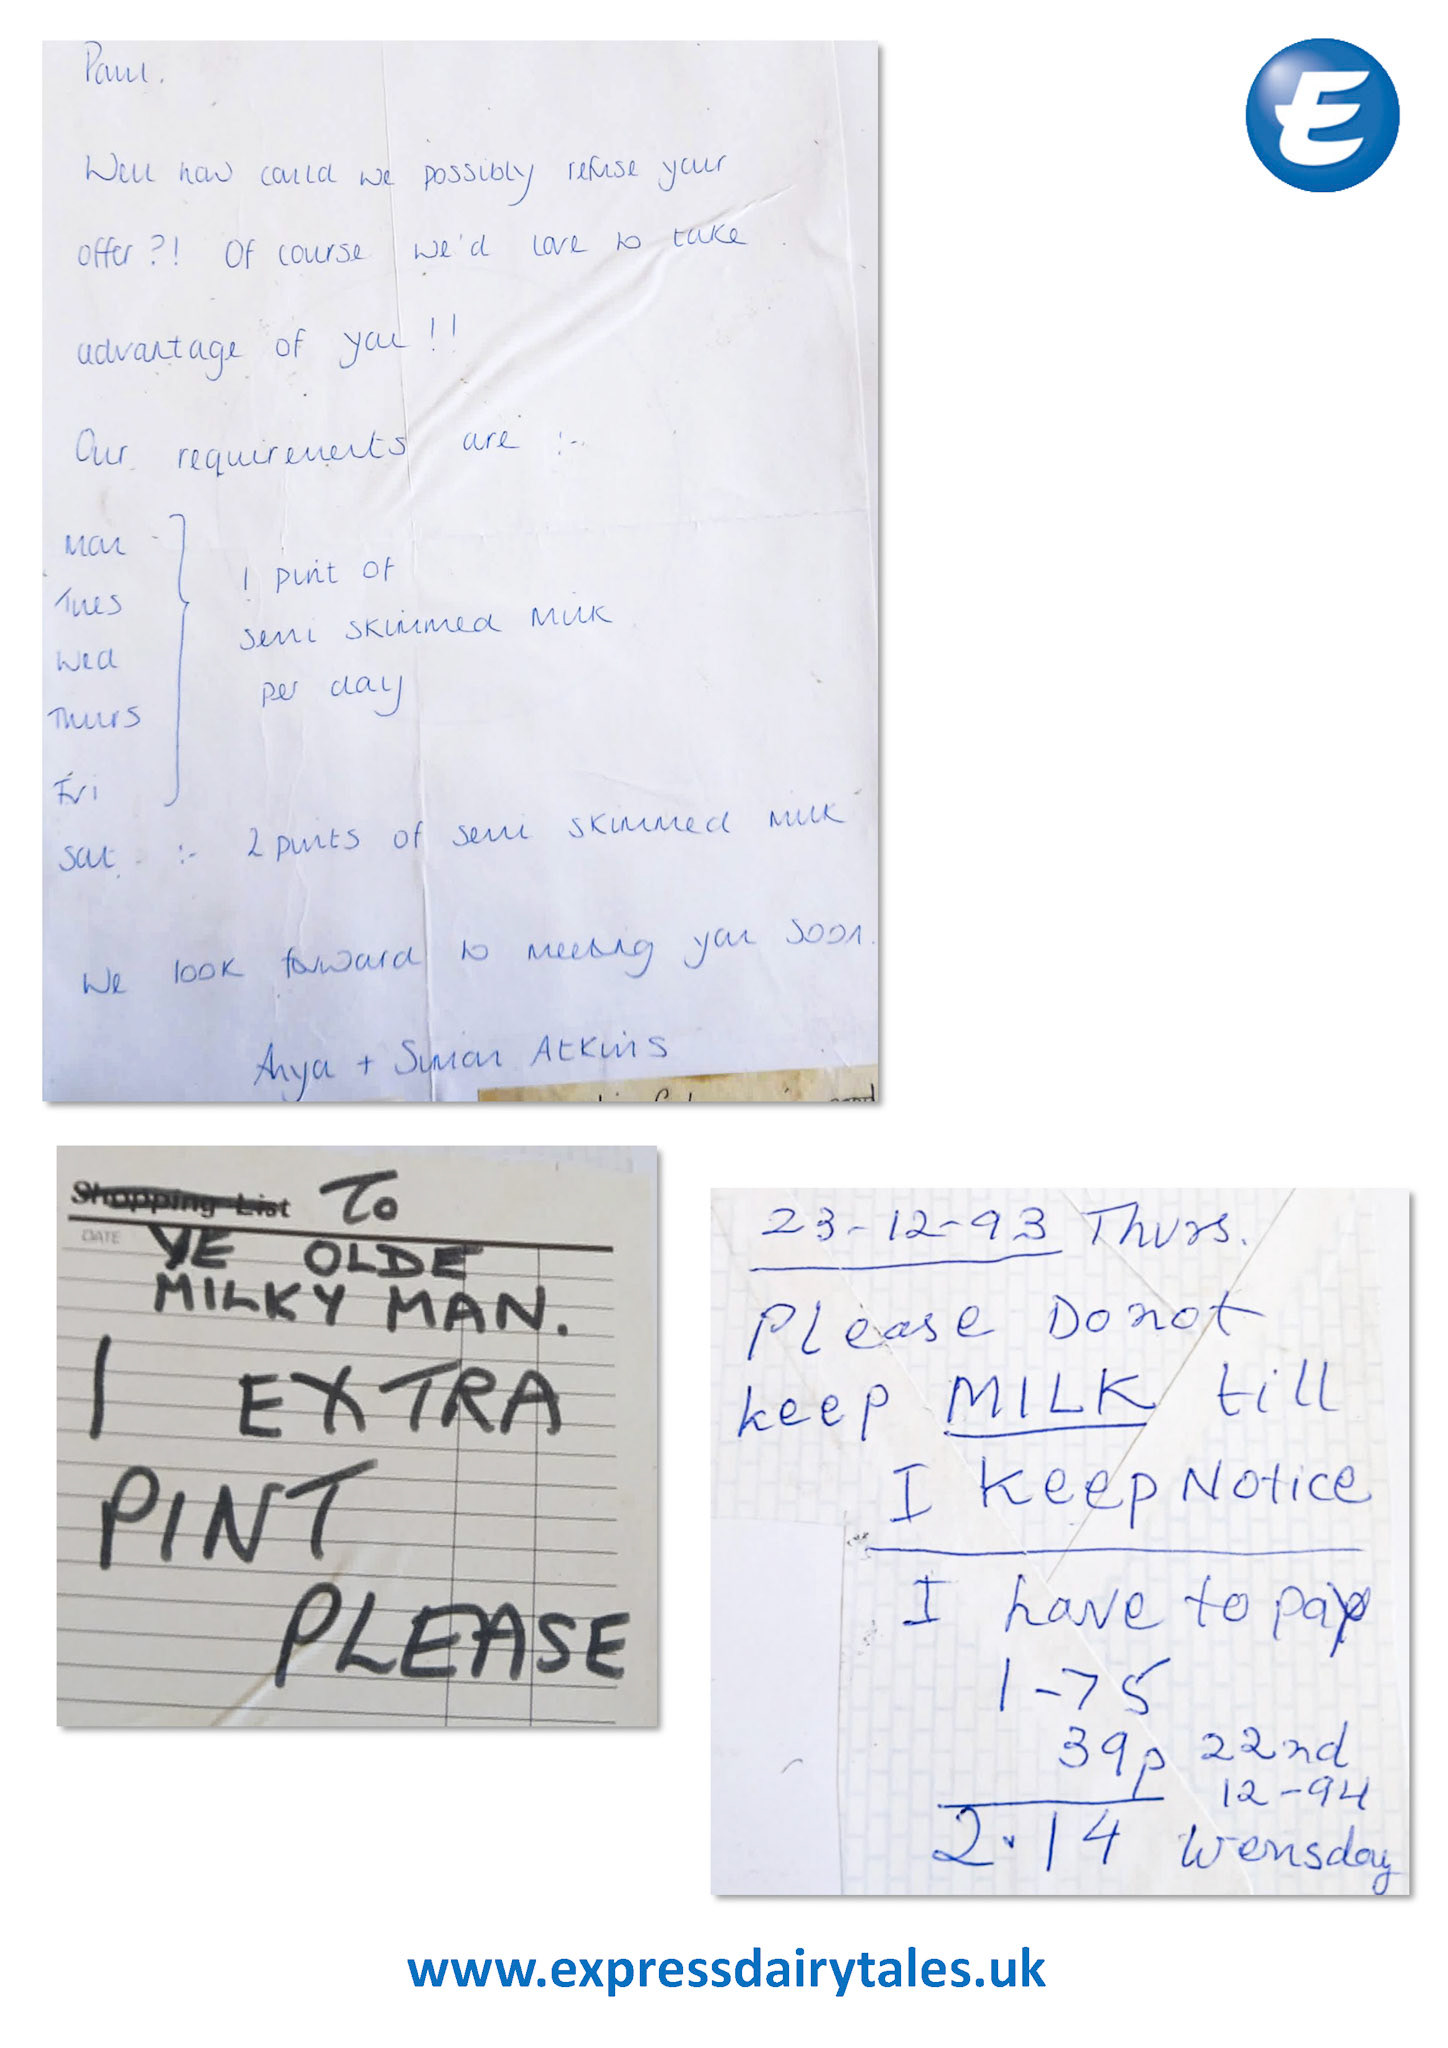 Paul.
Well how could we possibly refuse your
offer?! Of course we'd love to take
advantage of you!!
Our requirements are :-
Mon
Tues
Wed
Thurs
Fri
1 pint of
semi skimmed milk
per day
Sat :- 2 pints of semi skimmed milk
We look forward to meeting you soon.
Anya + Simon Atkins
E
Shopping List To
DATE
YE OLDE
MILKY MAN.
1 EXTRA
PINT
PLEASE
23-12-93 Thurs.
Please Do not
keep MILK till
I keep Notice
I have to pay
1-75
39p 22nd
12-94
2.14 Wensday
www.expressdairytales.uk